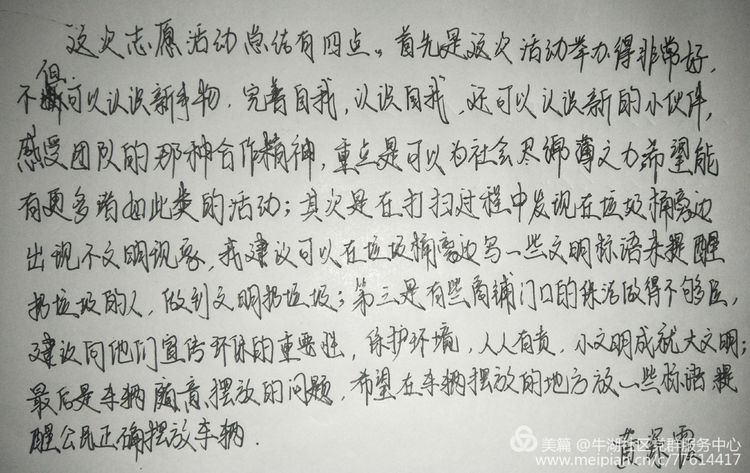 这次志愿活动总结有四点。首先是这次活动举办得非常好,
不但可以认识新事物,完善自我,认识自我,还可以认识新的小伙伴,
感受团队的那种合作精神,重点是可以为社会尽绵薄之力希望能
有更多诸如此类的活动;其次是在打扫过程中发现在垃圾桶旁边
出现不文明现象,我建议可以在垃圾桶旁边写一些文明标语来提醒
扔垃圾的人,做到文明扔垃圾;第三是有些商铺门口的保洁做得不够,
建议向他们宣传环保的重要性,保护环境,人人有责,小文明成就大文明;
最后是车辆随意摆放的问题,希望在车辆摆放的地方放一些标语提
醒公民正确摆放车辆.
美篇 @牛湖社区党群服务中心
www.meipian.cn/c/77614417